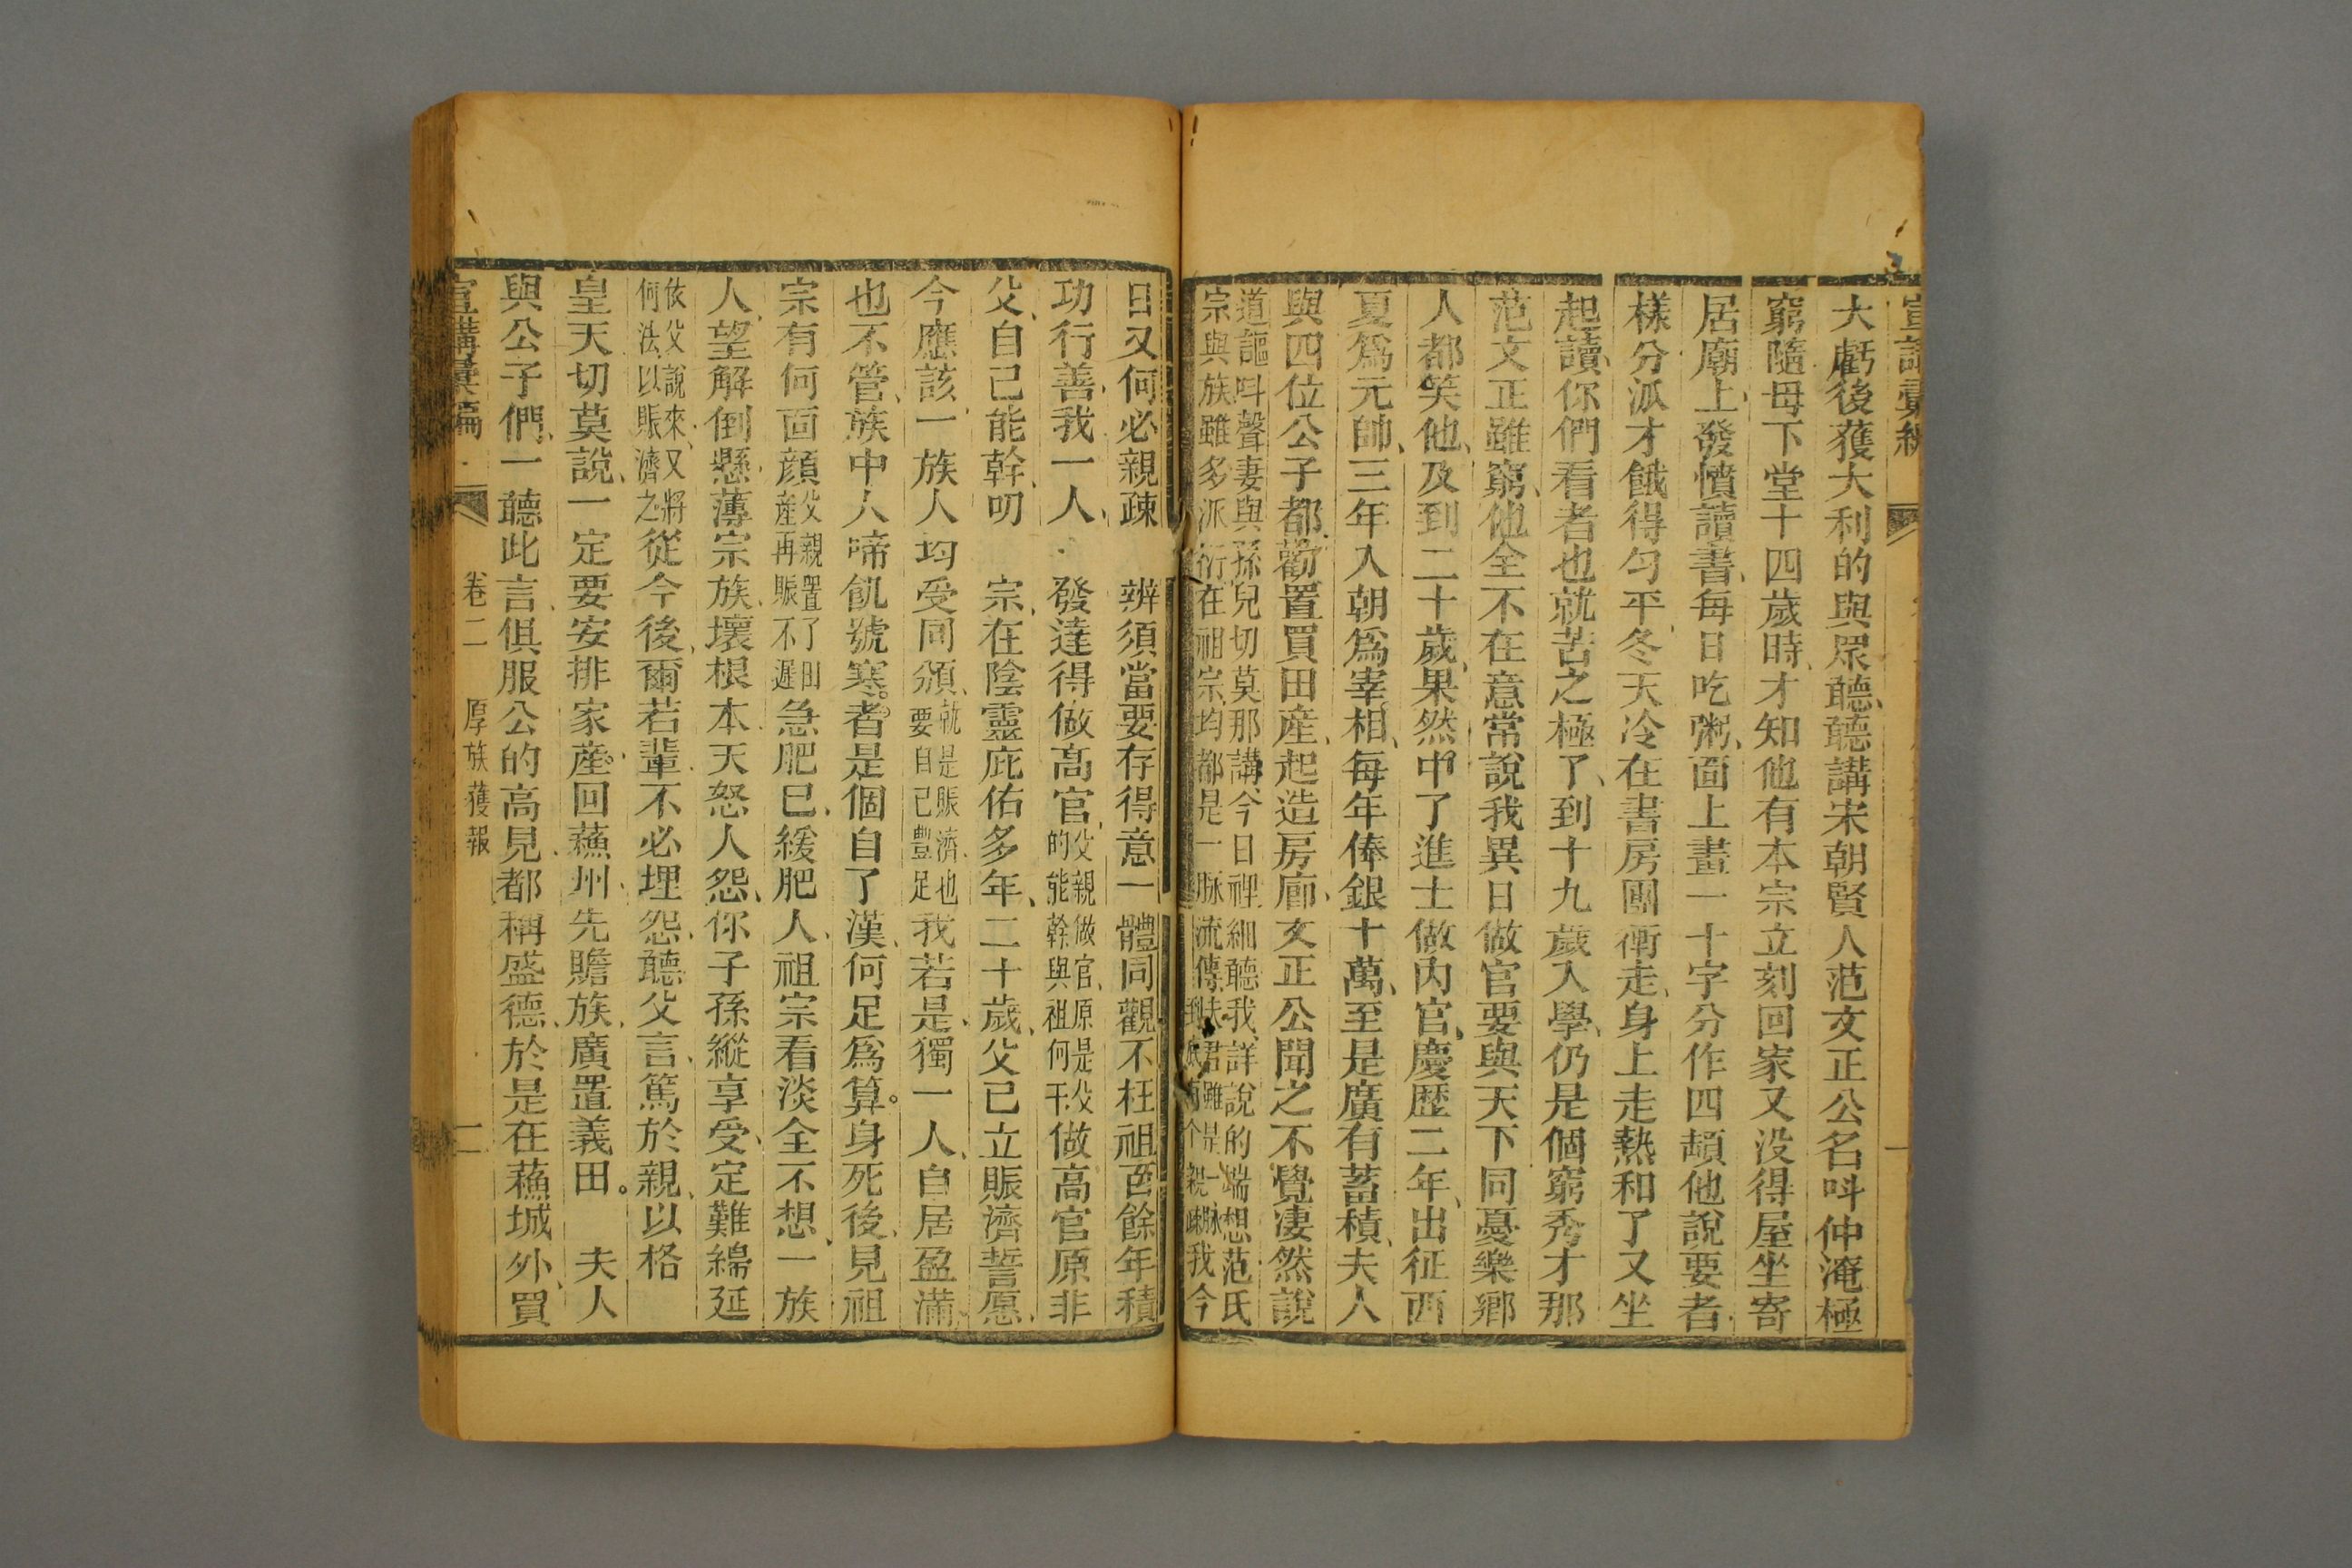 宣講彙編
大虧後獲大利的與眾聽、聽講宋朝賢人范文正公名呌仲淹極
窮隨母下堂十四歲時、才知他有本宗立刻回家又没得屋坐寄
居廟上、發憤讀書、每日吃粥、面上畫一十字分作四頓他說要者
樣分派才餓得匀平、冬天冷在書房團衕走、身上走熱和了又坐
起讀、你們看者也就苦之極了、到十九歲入學、仍是個窮秀才那
范文正雖窮、他全不在意常說我異日做官要與天下同憂樂鄉
人都笑他、及到二十歲、果然中了進士做内官、慶歷二年、出征西
夏爲元帥、三年入朝爲宰相、每年俸銀十萬、至是廣有蓄積、夫人
與四位公子都、勸置買田産、起造房廊、文正公聞之不覺凄然說
道謳呌聲妻與孫兒切莫那講今日裡細聽我詳說的端想范氏
宗與族雖多派衍在祖宗均都是一脉流傳 我今
日又何必親疎 辨須當要存得意一體同觀不枉祖百餘年積
功行善、我一人、發達得做高官、父親做官原是父的能幹與祖何干 做高官原非
父、自己能幹、叨 宗、在陰靈庇佑多年、二十歲、父已立賑濟誓愿、
今應該一族人均受同頒、就是賑濟也要自己豐足 我若是、獨一人、自居盈滿、
也不管、族中人啼飢號寒。者是個自了漢、何足爲算。身死後、見祖
宗有何面顔父親置了田産再賑不遲 急肥巳、緩肥人、祖宗看淡全不想、一族
人、望解倒懸、薄宗族、壞根本天怒人怨、你子孫縱享受、定難綿延
依父說來、又將何法以賑濟之 從今後、爾若輩、不必埋怨、聽父言、篤於親、以格
皇天切莫說、一定要安排家産。回蘓州、先贍族、廣置義田。 夫人
與公子們、一聽此言、俱服公的高見、都稱盛德、於是在蘓城外、買
宣講彙編 卷二 厚族獲報 二